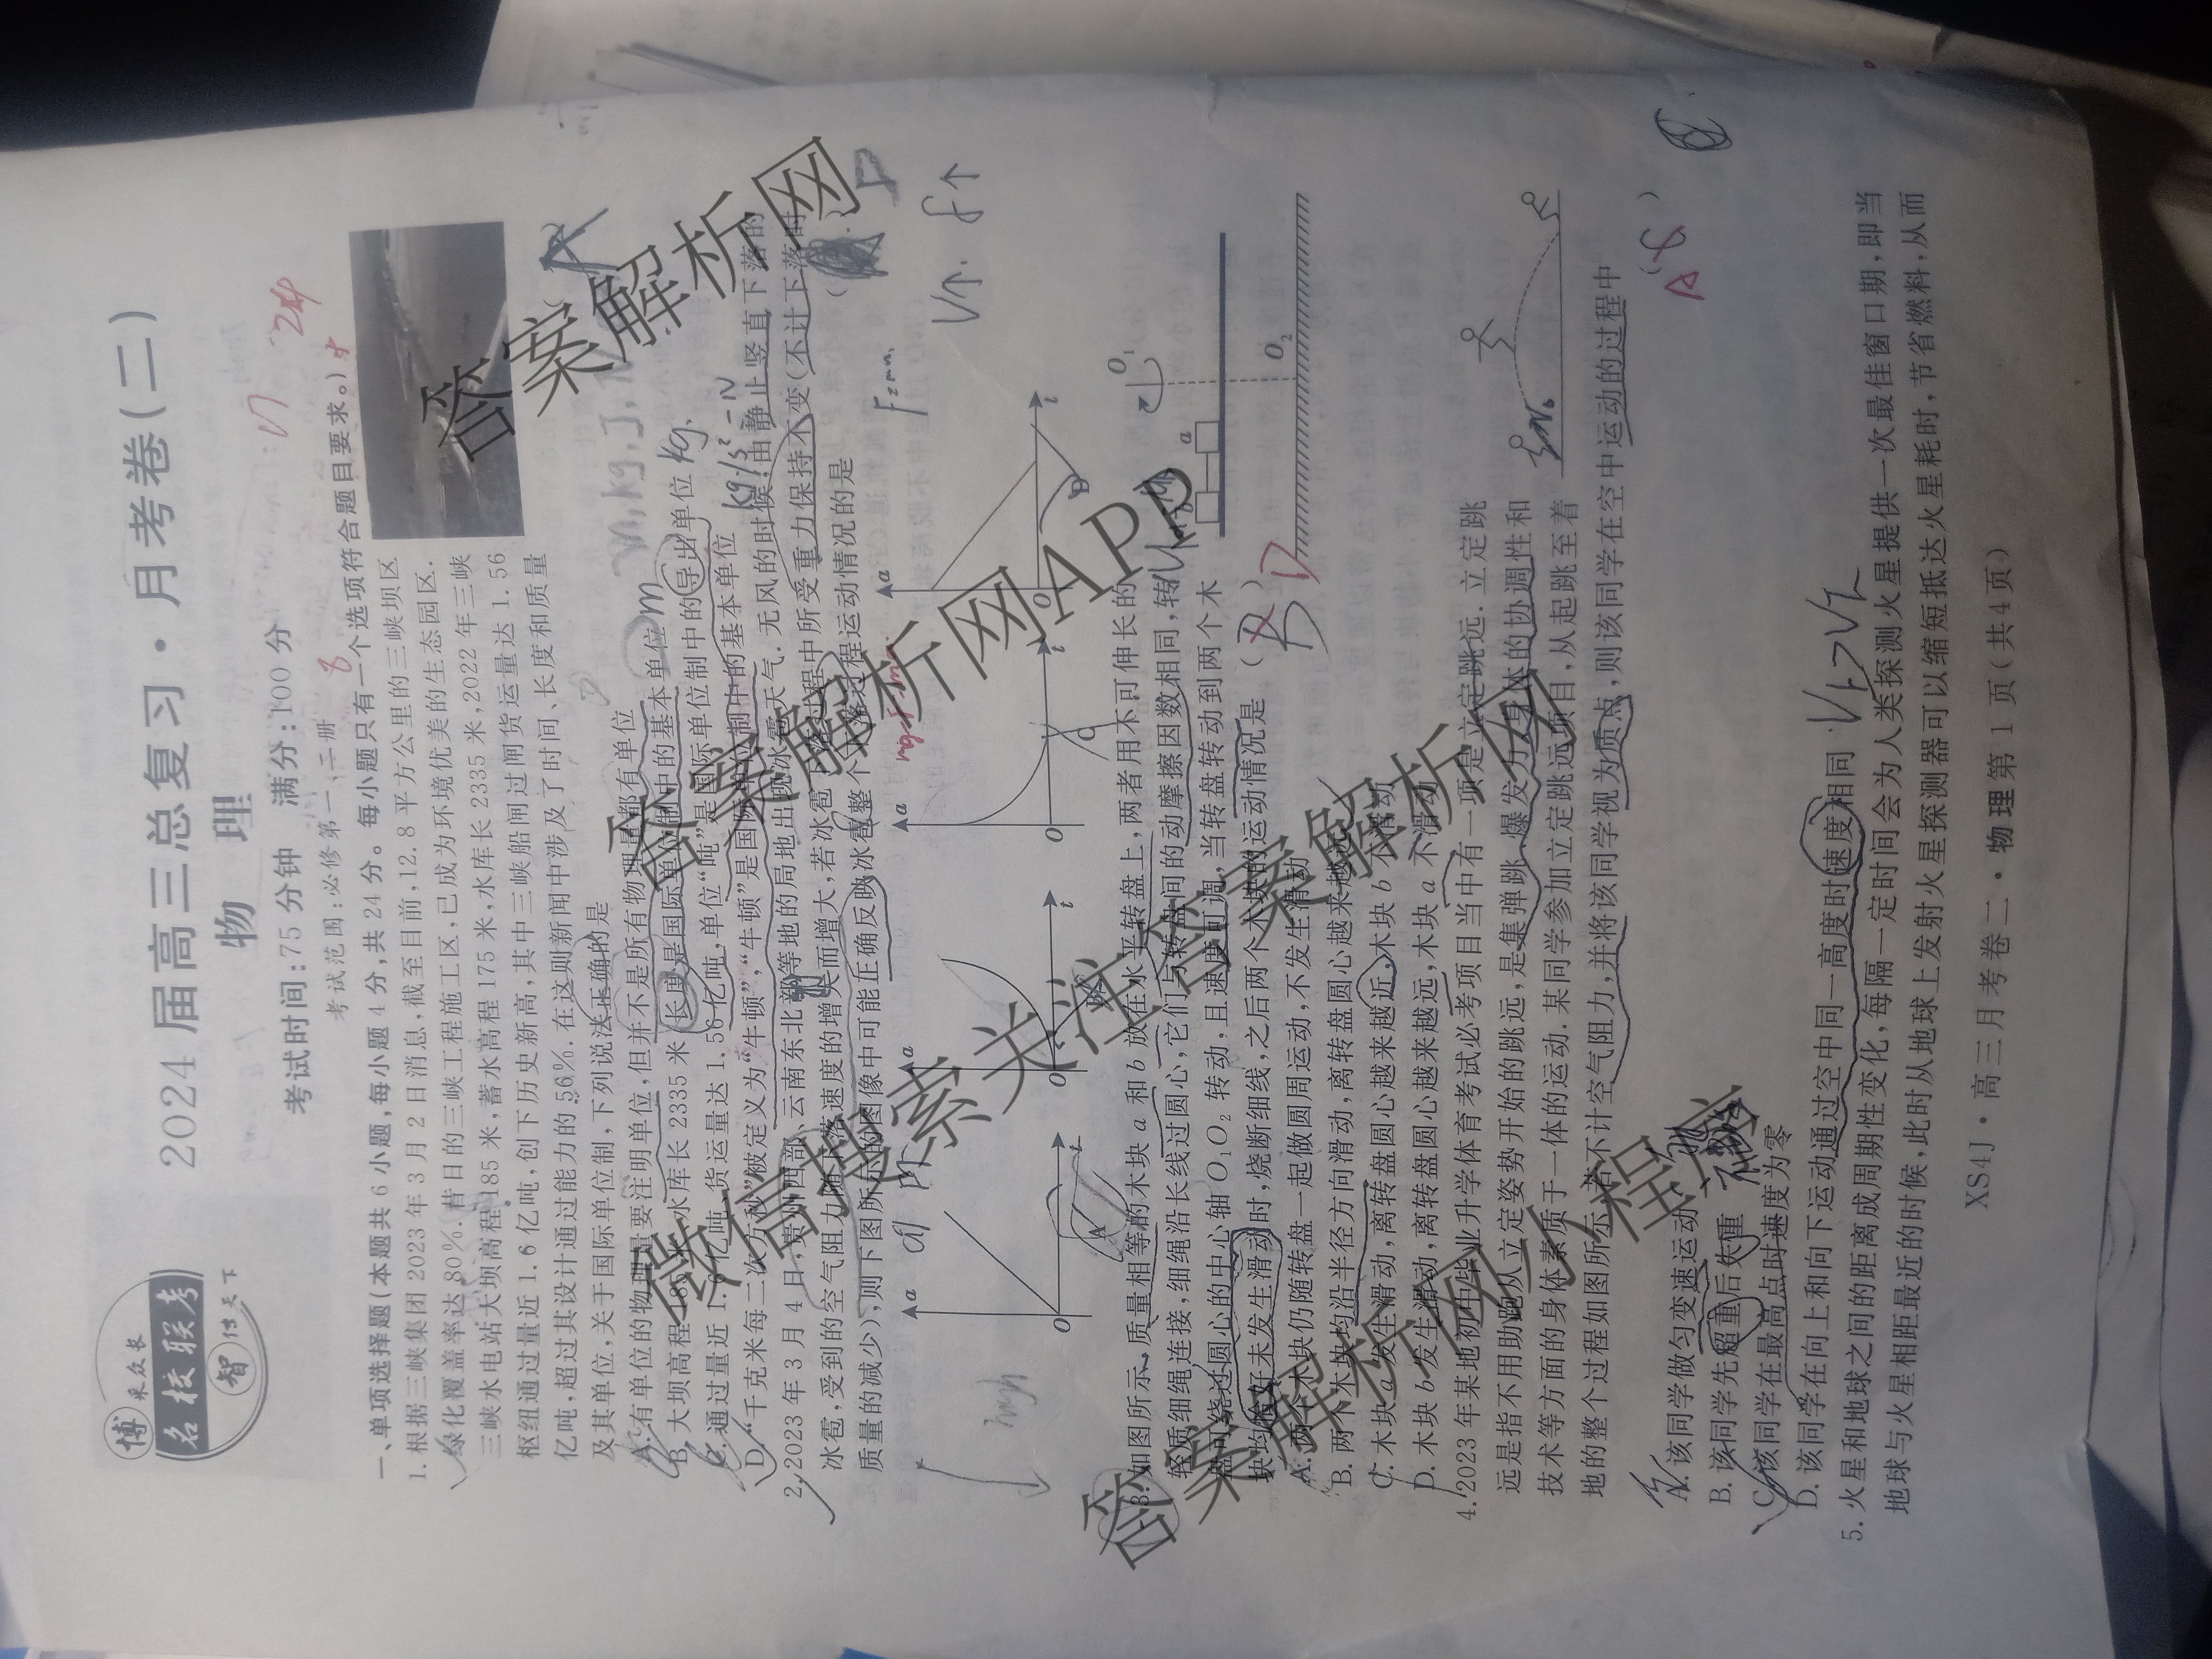 博采众长
名校联考
智仕天下
2024届高三总复习·月考卷(二)
物 理
考试时间:75分钟 满分:100分
考试范围:必修第一、二册
一、单项选择题(本题共6小题,每小题4分,共24分。每小题只有一个选项符合题目要求。)
1.根据三峡集团2023年3月2日消息,截至目前,12.8平方公里的三峡坝区
绿化覆盖率达80%.昔日的三峡工程施工区,已成为环境优美的生态园区.
三峡水电站大坝高程185米,蓄水高程175米,水库长2335米,2022年三峡
枢纽通过量近1.6亿吨,创下历史新高,其中三峡船闸过闸货运量达1.56
亿吨,超过其设计通过能力的56%.在这则新闻中涉及了时间、长度和质量
及其单位,关于国际单位制,下列说法正确的是
A.有单位的物理量要注明单位,但并不是所有物理量都有单位
B.大坝高程185米、水库长2335米,长度是国际单位制中的基本单位
C.通过量近1.6亿吨、货运量达1.56亿吨,单位“吨”是国际单位制中的导出单位
D.“千克米每二次方秒”被定义为“牛顿”,“牛顿”是国际单位制中的基本单位
2.2023年3月4日,贵州西部、云南东北部等地的局地出现冰雹天气.无风的时候,由静止竖直下落的
冰雹,受到的空气阻力随下落速度的增大而增大,若冰雹下落过程中所受重力保持不变(不计下落时
质量的减少),则下图所示的图像中可能正确反映冰雹整个下落过程运动情况的是
a
O
t
A
a
O
t
a
O
t
C
a
O
t
D
3.如图所示,质量相等的木块a和b放在水平转盘上,两者用不可伸长的
轻质细绳连接,细绳沿长线过圆心,它们与转盘间的动摩擦因数相同,转
盘可绕过圆心的中心轴O₁O₂转动,且速度可调,当转盘转动到两个木
块均恰好未发生滑动时,烧断细线,之后两个木块的运动情况是
a
O₁
O₂
A.两个木块仍随转盘一起做圆周运动,不发生滑动
B.两个木块均沿半径方向滑动,离转盘圆心越来越远
C.木块a发生滑动,离转盘圆心越来越近,木块b不滑动
D.木块b发生滑动,离转盘圆心越来越远,木块a不滑动
4.2023年某地初中毕业升学体育考试必考项目当中有一项是立定跳远.立定跳
远是指不用助跑从立定姿势开始的跳远,是集弹跳、爆发力、身体的协调性和
技术等方面的身体素质于一体的运动.某同学参加立定跳远项目,从起跳至着
地的整个过程如图所示.若不计空气阻力,并将该同学视为质点,则该同学在空中运动的过程中
A.该同学做匀变速运动
B.该同学先超重后失重
C.该同学在最高点时速度为零
D.该同学在向上和向下运动通过空中同一高度时速度相同
V₁>V₂
5.火星和地球之间的距离成周期性变化,每隔一定时间会为人类探测火星提供一次最佳窗口期,即当
地球与火星相距最近的时候,此时从地球上发射火星探测器可以缩短抵达火星耗时,节省燃料,从而
XS4J·高三月考卷二·物理第1页(共4页)
答案解析网
答案解析网APP
微信搜索关注答案解析网
答案解析网小程序